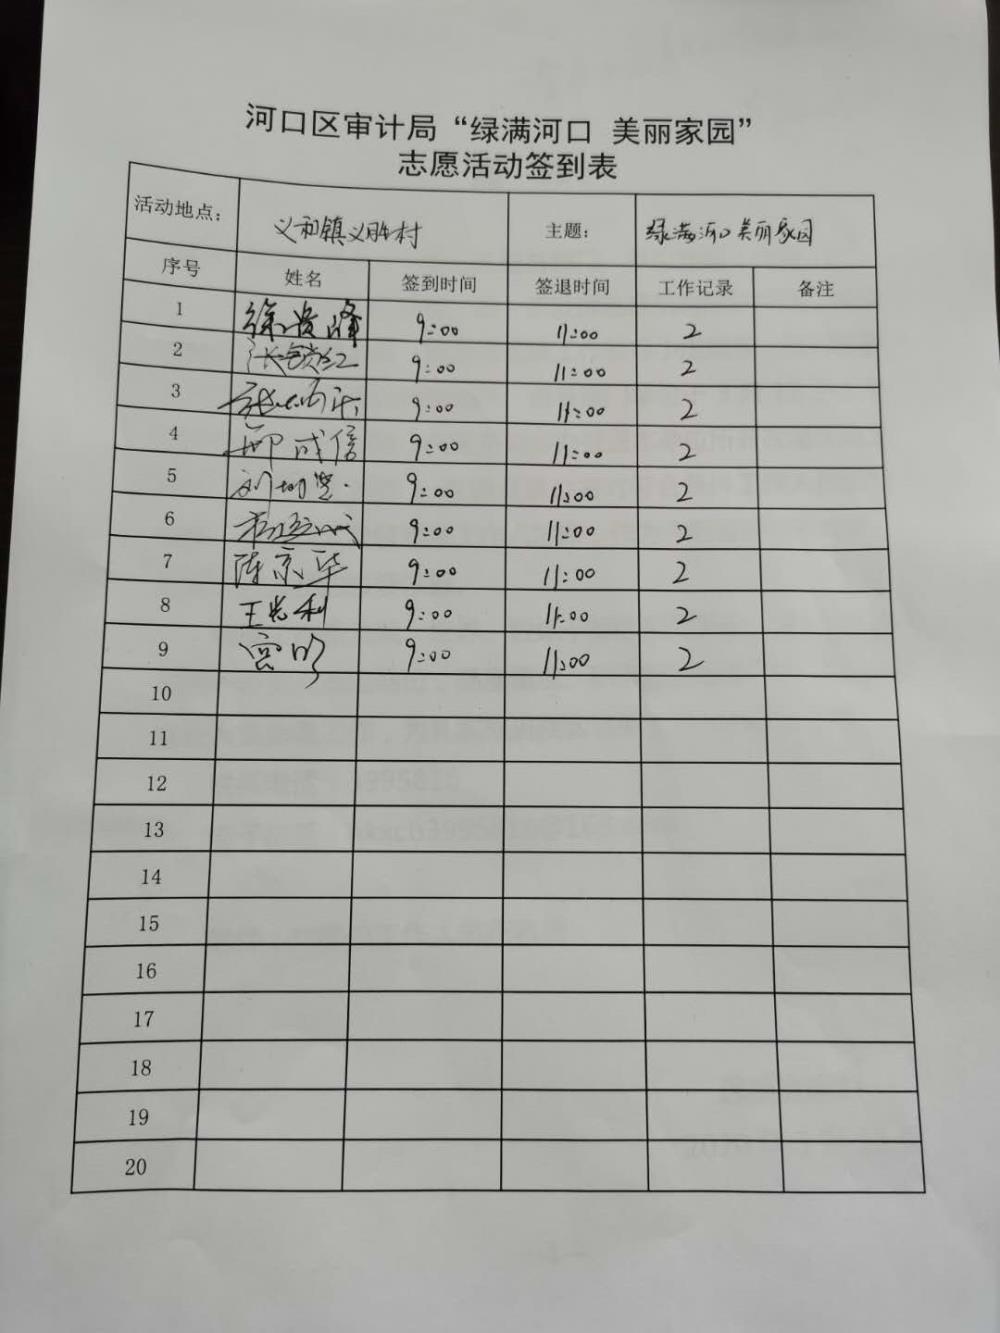 河口区审计局“绿满河口 美丽家园”
志愿活动签到表
活动地点: 义和镇义胜村 主题: 绿满河口美丽家园
序号 姓名 签到时间 签退时间 工作记录 备注
1 9:00 11:00 2
2 9:00 11:00 2
3 9:00 11:00 2
4 成信 9:00 11:00 2
5 刘 9:00 11:00 2
6 9:00 11:00 2
7 陈京华 9:00 11:00 2
8 王 利 9:00 11:00 2
9 宫明 9:00 11:00 2
10
11
12
13
14
15
16
17
18
19
20